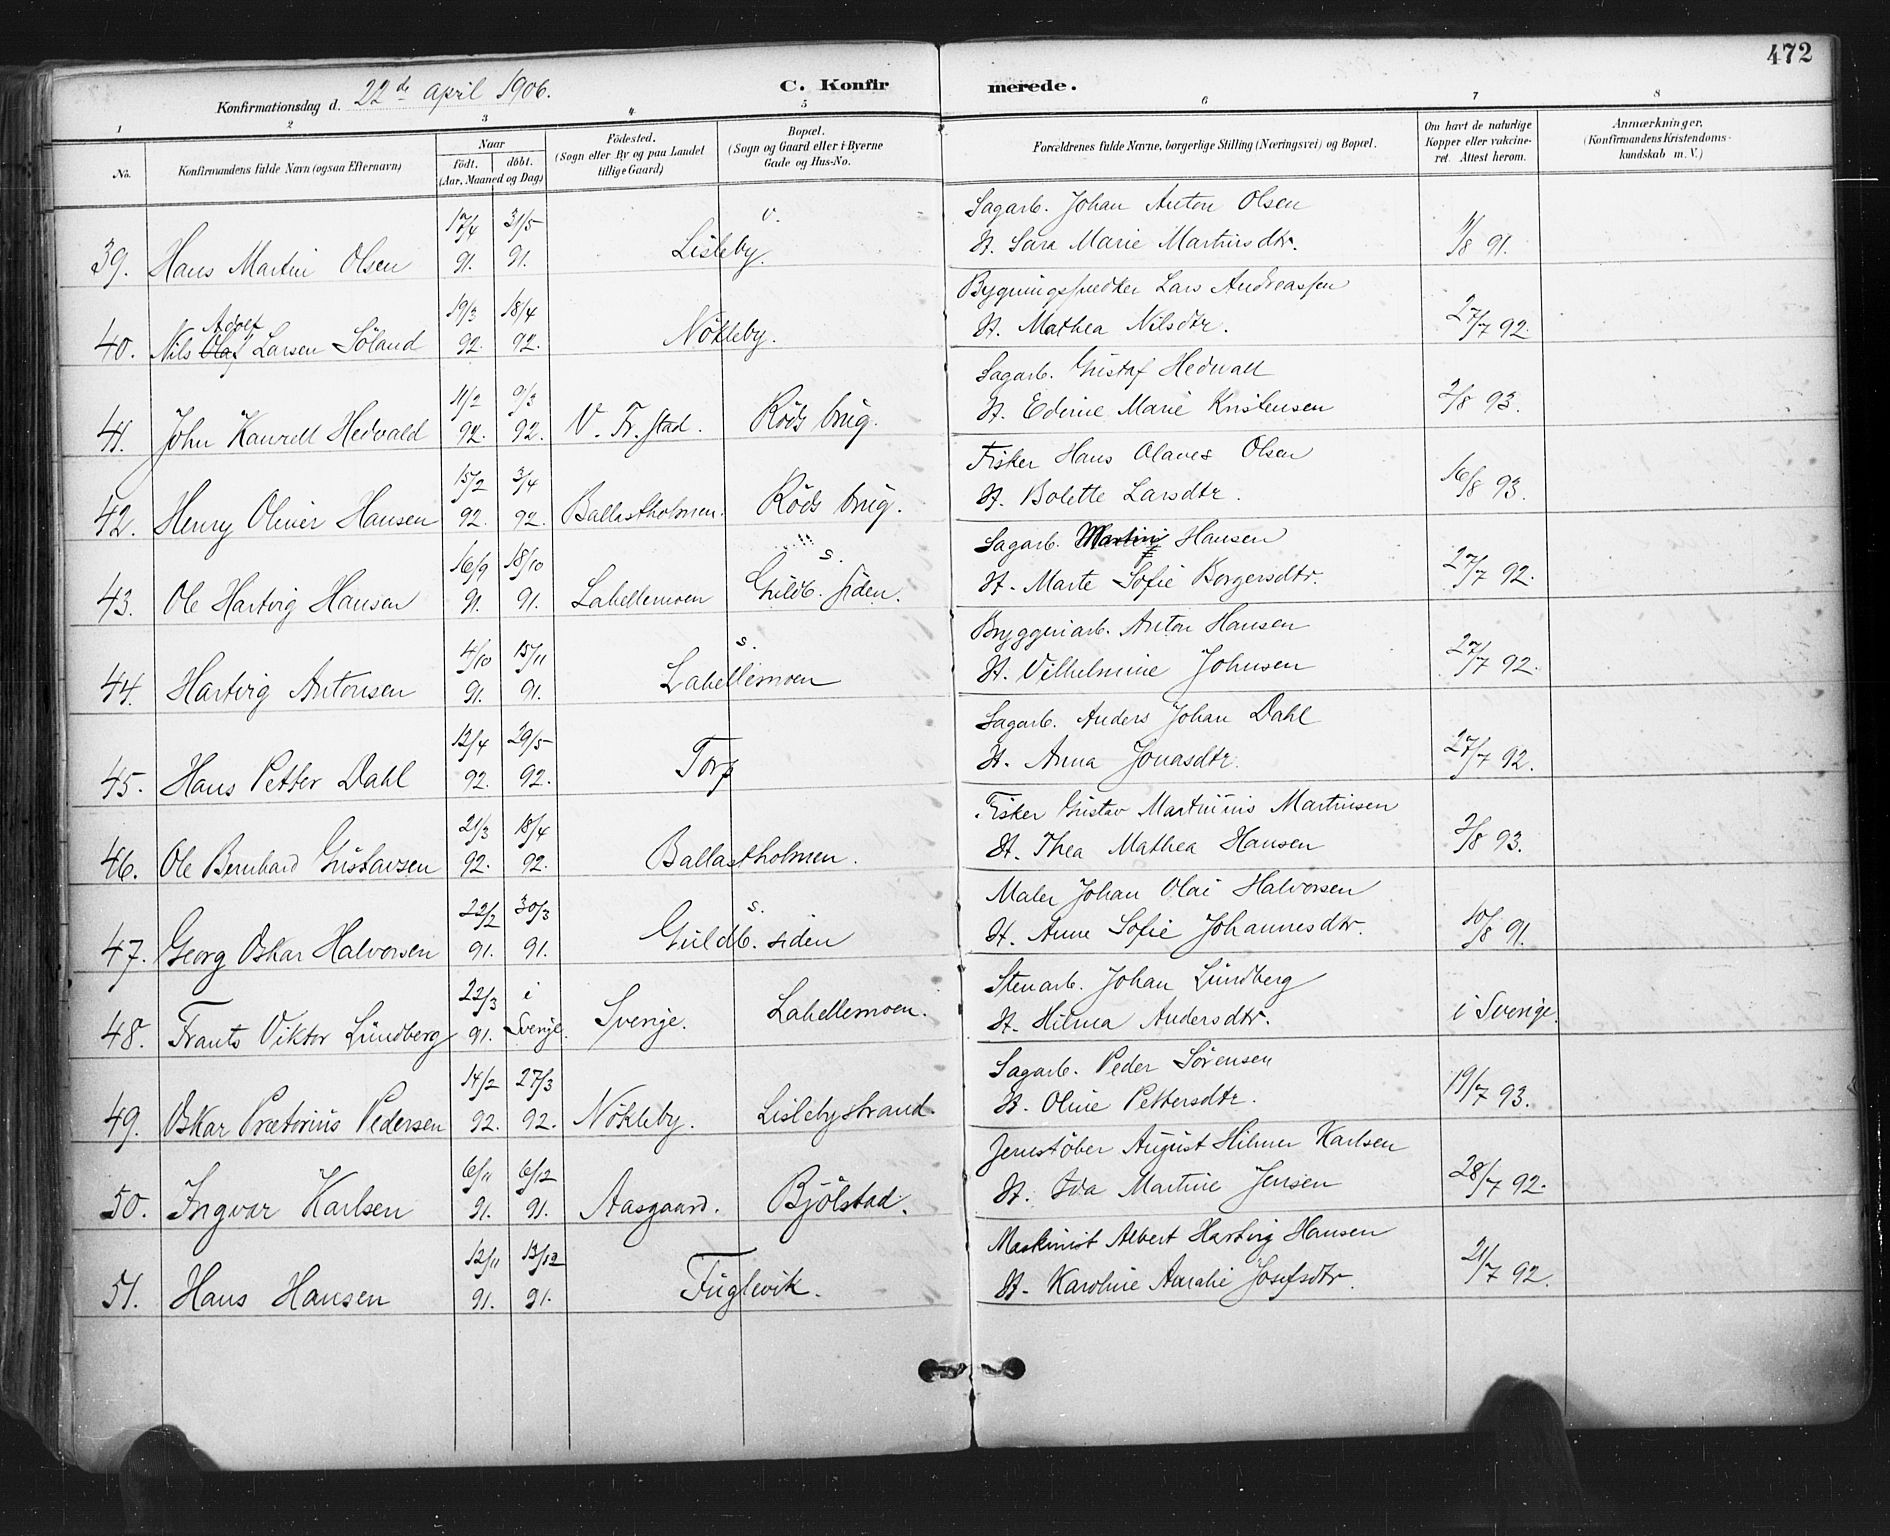 472
Konfirmationsdag d. 22de april 1906.
C. Konfirmerede.
1 2 3 4 5 6 7 8
No.
Konfirmandens fulde Navn (ogsaa Efternavn)
Naar
födt. döbt.
(Aar, Maaned og Dag)
Födested.
(Sogn eller By og paa Landet
tillige Gaard)
Bopæl.
(Sogn og Gaard eller i Byerne
Gade og Hus-No.
Forældrenes fulde Navne, borgerlige Stilling (Næringsvei) og Bopæl.
Om havt de naturlige
Kopper eller vakcine-
ret. Attest herom.
Anmærkninger,
(Konfirmandens Kristendoms-
kundskab m. V.)
17/4 31/5 v. Sagarb. Johan Anton Olsen
39. Hans Martin Olsen 91. 91. Lisleby. H. Sara Marie Martinsdtr. 11/8 91.
19/3 18/4 Lars Andreassen
Adolf
40. Nils Olaf Larsen Söland 92. 92. Nökleby. H. Mathea Nilsdtr. 27/7 92.
11/2 9/3 Sagarb. Gustaf Hedvall
41. John Kaurell Hedvald 92. 92. V. Fr.stad. Röds brug. H. Ederine Marie Kristensen 2/8 93.
15/2 3/4 Fisker Hans Olaves Olsen
42. Henry Oliver Hansen 92. 92. Ballastholmen. Röds brug. H. Bolette Larsdtr. 16/8 93.
16/9 18/10 s. Sagarb. Martin Hansen
43. Ole Hartvig Hansen 91. 91. Labellemoen Guldb. siden. H. Marte Sofie Borgersdtr. 27/7 92.
4/10 15/11 s. Bryggeriarb. Anton Hansen
44. Hartvig Antonsen 91. 91. Labellemoen H. Vilhelmine Johnsen 27/7 92.
12/4 29/5 Sagarb. Anders Johan Dahl
45. Hans Petter Dahl 92. 92. Torp H. Anna Jonasdtr. 27/7 92.
21/3 18/4 Fisker Gustav Martinius Martinsen
46. Ole Bernhard Gustavsen 92. 92. Ballastholmen. H. Thea Mathea Hansen 2/8 93.
22/2 30/3 s. Maler Johan Olai Halvorsen
47. Georg Oskar Halvorsen 91. 91. Guldb. siden H. Anne Sofie Johannesdtr. 10/8 91.
22/3 i Stenarb. Johan Lundberg
48. Frants Viktor Lundberg 91. Sverige. Sverige. Labellemoen. H. Hilma Andersdtr. i Sverige.
14/2 27/3 Sagarb. Peder Sörensen
49. Oskar Prætorius Pedersen 92. 92. Nökleby. Lislebystrand. H. Oline Pettersdtr. 19/7 93.
6/11 6/12 Jernstöber August Hilmer Karlsen
50. Ingvar Karlsen 91. 91. Aasgaard. Bjölstad. H. Ida Martine Jensen 28/7 92.
12/11 13/12 Maskinist Albert Hartvig Hansen
51. Hans Hansen 91. 91. Fuglevik. H. Karoline Amalie Josefsdtr. 21/7 92.